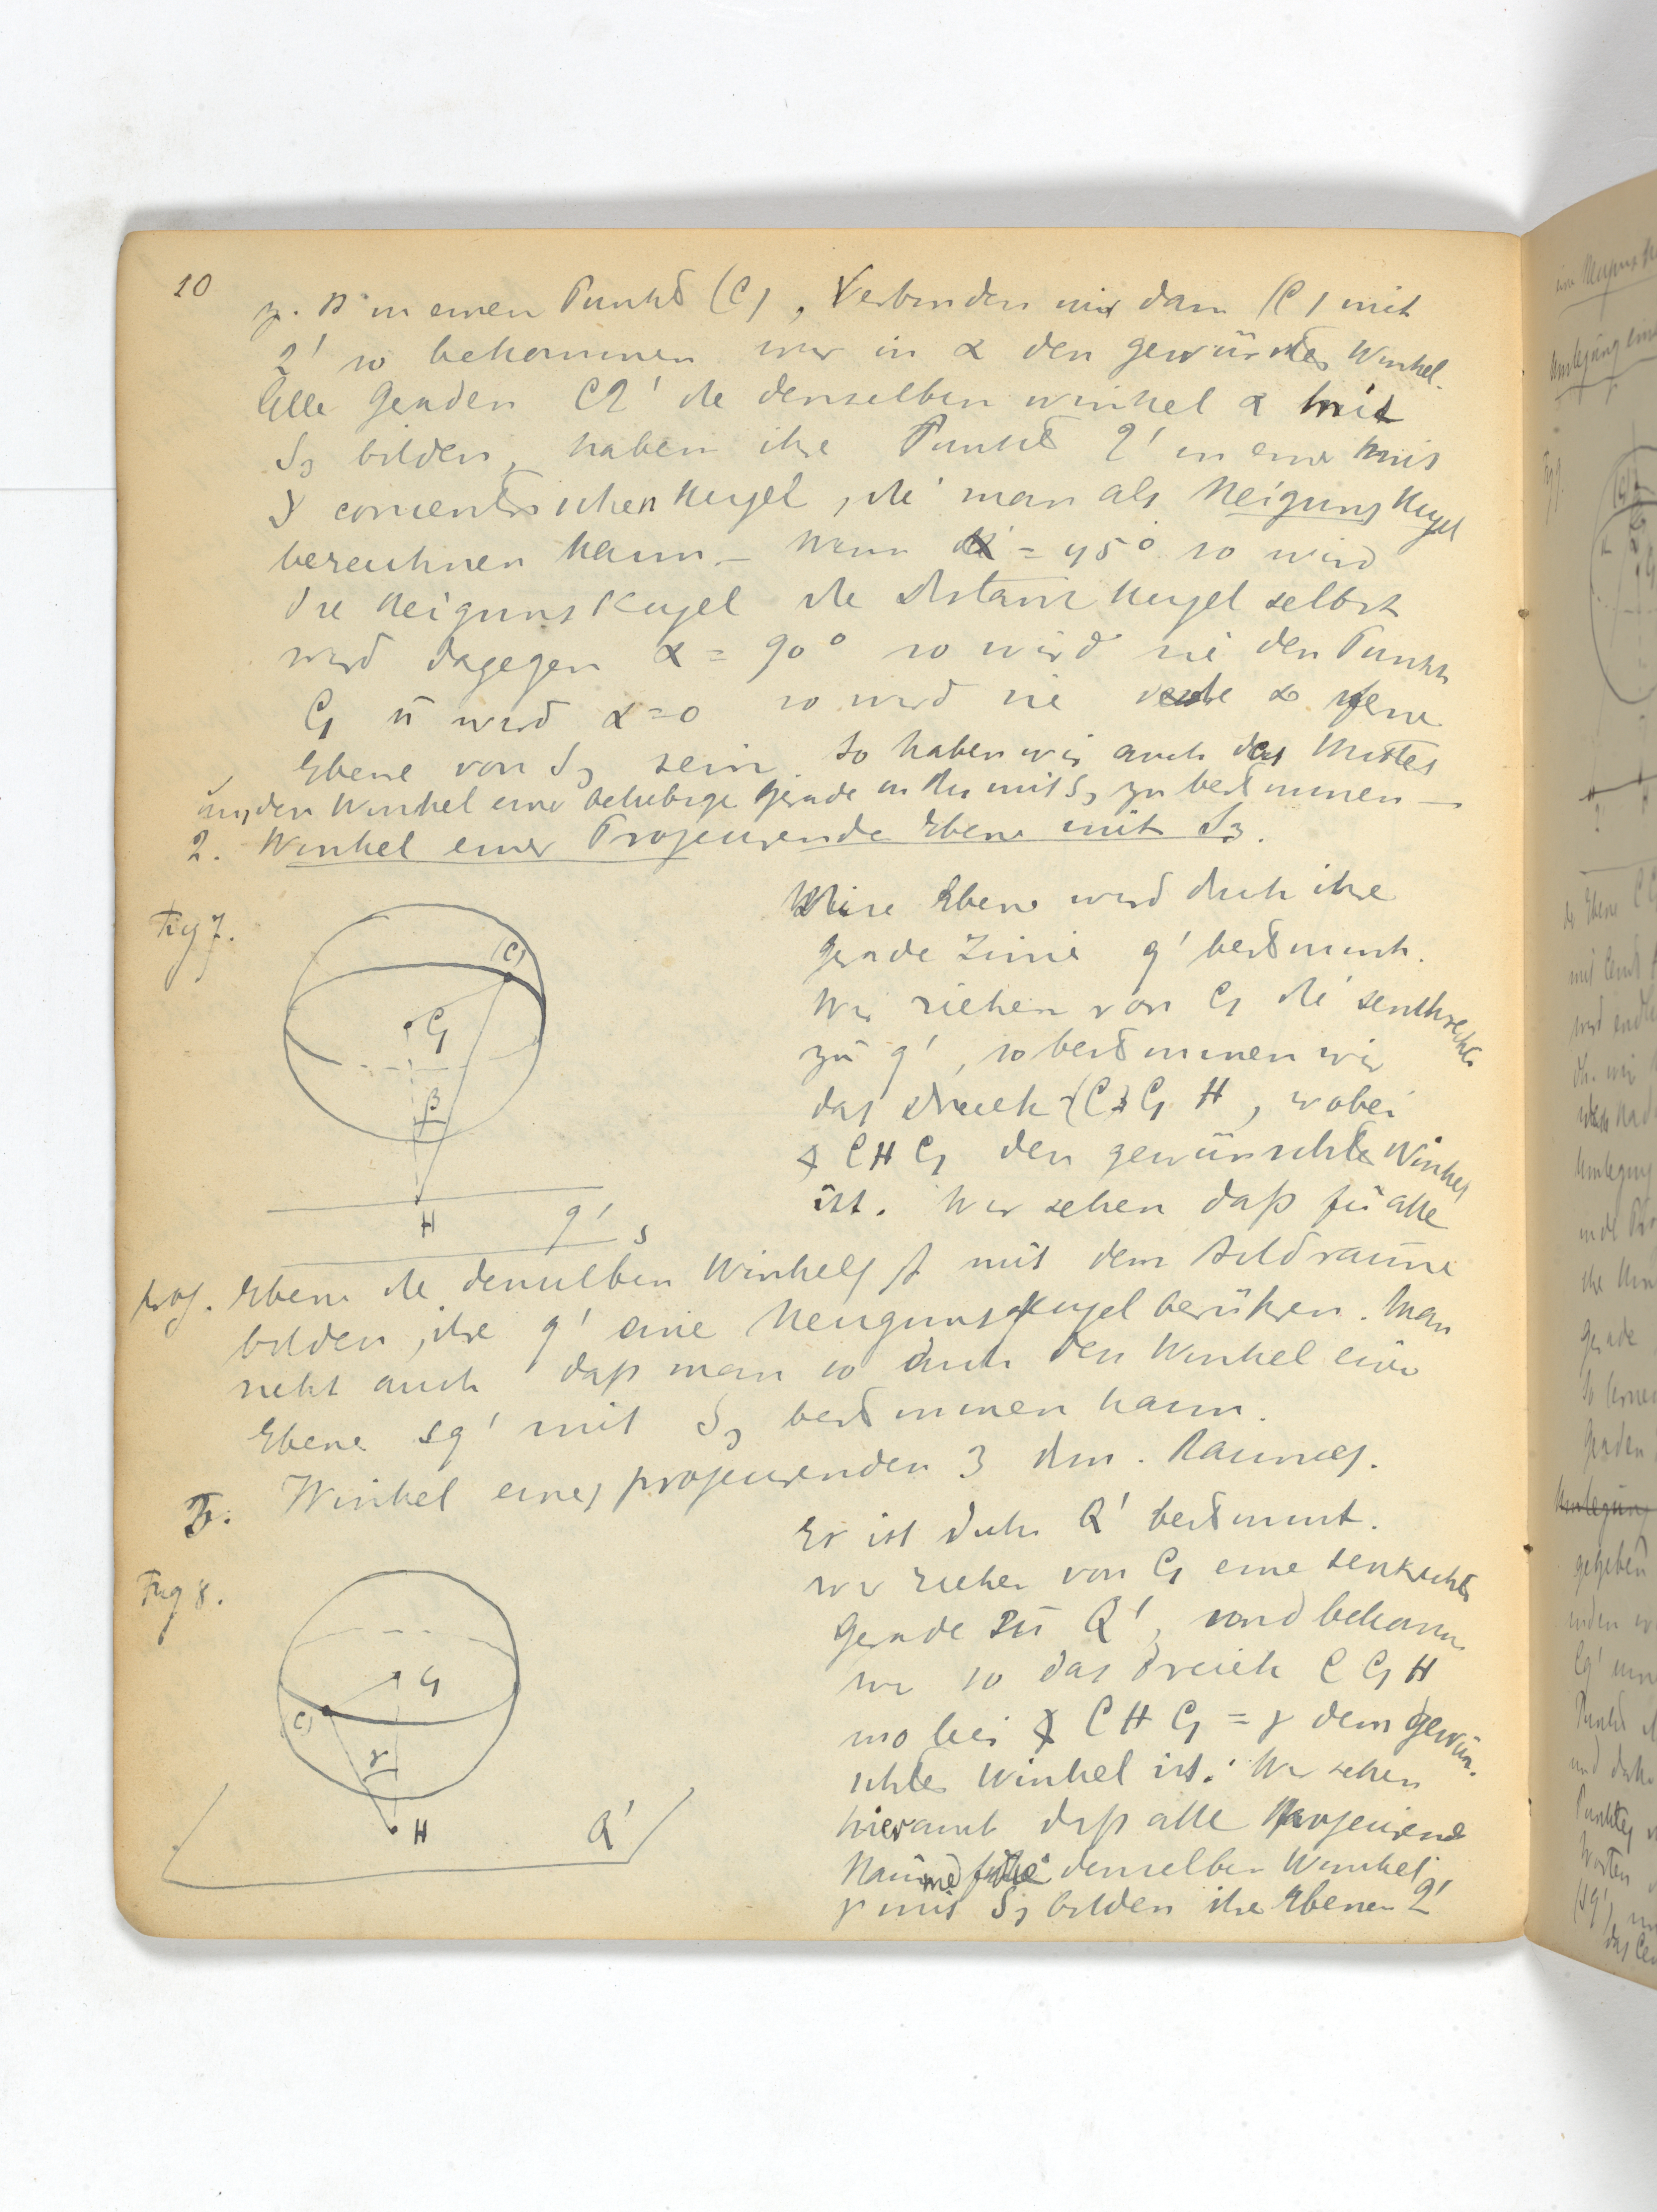 10
z. B in einen Punkt (C), Verbinden wir dann (C) mit
Q' so bekommen wir in α den gewünschten Winkel.
Alle Geraden CQ' die denselben Winkel α mit
S3 bilden, haben ihre Punkte Q' in einer mit
concentrischen Kugel, die man als Neigungskugel
bezeichnen kann – Wenn α = 45° so wird
die Neigungskugel die Distanzkugel selbst
wird dagegen α = 90° so wird sie den Punkt
C1 ū wird α=0 so wird sie die ∞ ferne
Ebene von S3 sein. So haben wir auch das Mittel
um den Winkel einer beliebige Gerade in mit S3 zu bestimmen –
2. Winkel einer Projeurende Ebene mit S3.
Fig 7.
Diese Ebene wird durch ihre
gerade Linie g' bestimmt.
Wir ziehen von C1 die senkrechte
zu g', so bestimmen wir
das Dreieck (C) C1 H, wobei
∢ C H C1 den gewünschte Winkel
ist. Wir sehen daß für alle
(C)
C1
β
H
g'
s
proj. Ebene die denselben Winkel β mit dem Bildraume
bilden, ihre g' eine Neigungskugel berühren. Man
sieht auch daß man so auch den Winkel einer
Ebene sg' mit S3 bestimmen kann.
3. Winkel eines projeurenden 3 dim. Raumes.
Fig 8.
Er ist durch Q' bestimmt.
wir ziehen von C1 eine senkrechte
Gerade zu Q', und bekomm
wir so das Dreieck C C1 H
wobei ∢ C H C1 = γ dem gewün.
schte Winkel ist. Wir sehen
hieraus daß alle Projeurende
Räume die denselben Winkel
γ mit S3 bilden ihre Ebenen Q'
C1
(C)
γ
H
Q'